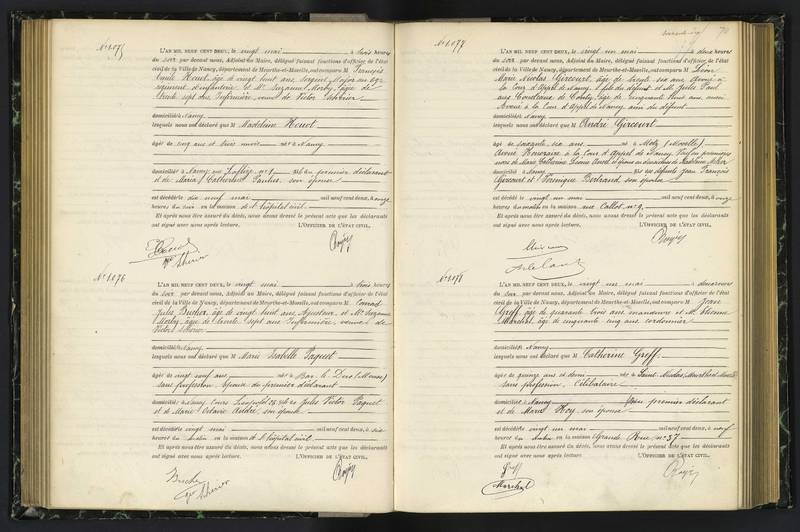 N° 1.075
L'AN MIL NEUF CENT DEUX, le vingt mai à trois heures
du soir par devant nous, Adjoint au Maire, délégué faisant fonctions d'officier de l'état
civil de la Ville de Nancy, département de Meurthe-et-Moselle, ont comparu M François
Emile Houot, âgé de vingt huit ans, Sergent Major au 69e
régiment d'infanterie et Me Suzanne Morby, âgée de
trente sept ans, Infirmière, veuve de Victor
domiciliés à Nancy
lesquels nous ont déclaré que M Madeleine Houot
âgée de cinq ans et trois mois née à Nancy
domiciliée à Nancy rue n° 1 fille du premier déclarant
et de Maria Catherine Paulus, son épouse
est décédée le dix neuf mai mil neuf cent deux, à onze
heures du soir en la maison de l'hôpital civil.
Et après nous être assuré du décès, nous avons dressé le présent acte que les déclarants
ont signé avec nous après lecture. L'OFFICIER DE L'ÉTAT CIVIL,
N° 1.076
L'AN MIL NEUF CENT DEUX, le vingt mai à trois heures
du soir par devant nous, Adjoint au Maire, délégué faisant fonctions d'officier de l'état
civil de la Ville de Nancy, département de Meurthe-et-Moselle, ont comparu M Conrad
Jules Bucher, âgé de vingt huit ans Ajusteur, et Me Suzanne
Morby, âgée de trente sept ans Infirmière, veuve de
Victor
domiciliés à Nancy
lesquels nous ont déclaré que M Marie Isabelle Paquet
âgée de vingt neuf ans née à Bar-le-Duc (Meuse)
sans profession, épouse du premier déclarant
domiciliée à Nancy, cours Léopold 25, fille de Jules Victor Paquet
et de Marie Octavie André, son épouse
est décédée le vingt mai mil neuf cent deux, à six
heures du matin en la maison de l'hôpital civil.
Et après nous être assuré du décès, nous avons dressé le présent acte que les déclarants
ont signé avec nous après lecture. L'OFFICIER DE L'ÉTAT CIVIL,
Bucher
70
N° 1.077
L'AN MIL NEUF CENT DEUX, le vingt un mai à deux heures
du soir par devant nous, Adjoint au Maire, délégué faisant fonctions d'officier de l'état
civil de la Ville de Nancy, département de Meurthe-et-Moselle, ont comparu M Léon
Marie Nicolas Gircourt, âgé de trente six ans, Avoué à
la Cour d'Appel de Nancy, fils du défunt et M. Jules Paul
âgé de cinquante huit ans, ancien
Avoué à la Cour d'Appel de Nancy, ami du défunt
domiciliés à Nancy
lesquels nous ont déclaré que M André Gircourt
âgé de soixante six ans né à Metz (Moselle)
Avoué Honoraire à la Cour d'Appel de Nancy, veuf en premières
noces de Marie Catherine et époux en deuxièmes de
domicilié à Nancy fils des défunts Jean François
Gircourt et Véronique Bertrand, son épouse
est décédé le vingt un mai mil neuf cent deux, à onze
heures du matin en la maison rue Callot n° 9.
Et après nous être assuré du décès, nous avons dressé le présent acte que les déclarants
ont signé avec nous après lecture. L'OFFICIER DE L'ÉTAT CIVIL,
N° 1.078
L'AN MIL NEUF CENT DEUX, le vingt un mai à deux heures
du soir par devant nous, Adjoint au Maire, délégué faisant fonctions d'officier de l'état
civil de la Ville de Nancy, département de Meurthe-et-Moselle, ont comparu M Jean
Greff, âgé de quarante trois ans, manœuvre et M. Etienne
Marchal, âgé de cinquante cinq ans, cordonnier
domiciliés à Nancy
lesquels nous ont déclaré que M Catherine Greff
âgée de quinze ans et demi née à Saint-Nicolas, Meurthe et Moselle
sans profession, Célibataire
domiciliée à Nancy fille du premier déclarant
et de Marie Hoy, son épouse
est décédée le vingt un mai mil neuf cent deux, à neuf
heures du matin en la maison Grande Rue n° 37
Et après nous être assuré du décès, nous avons dressé le présent acte que les déclarants
ont signé avec nous après lecture. L'OFFICIER DE L'ÉTAT CIVIL,
Greff
Marchal